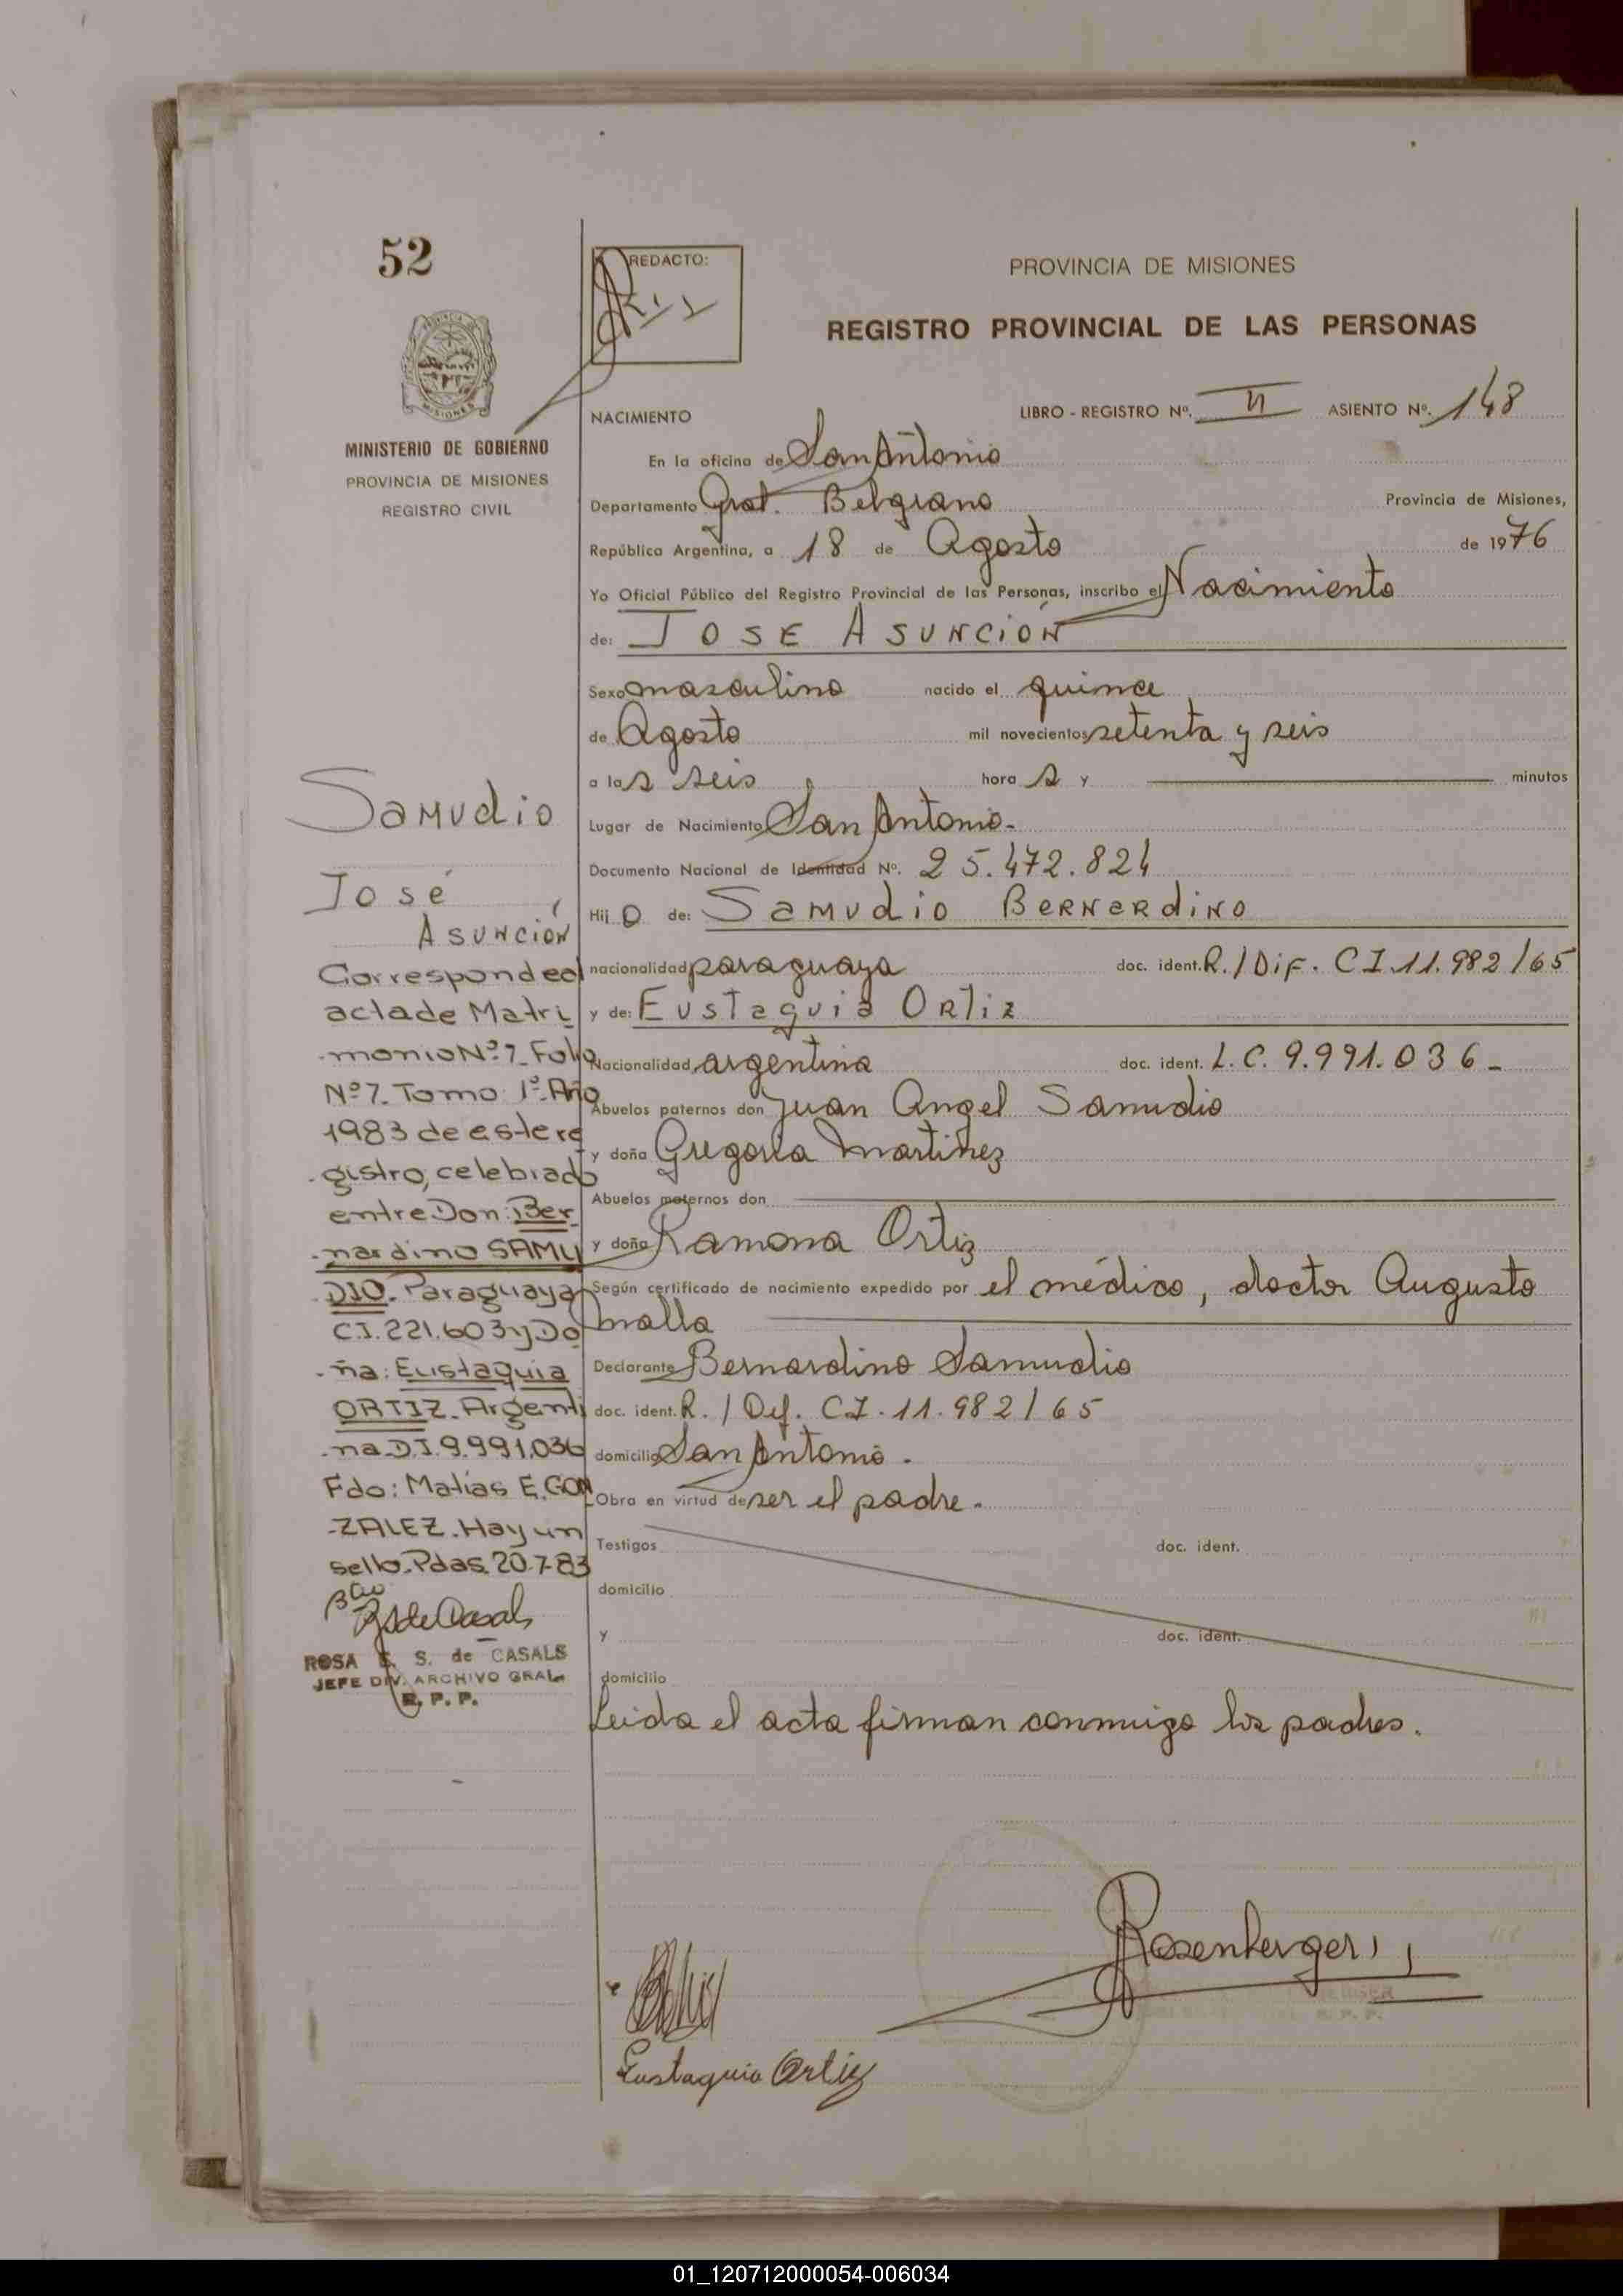 52
REDACTO:
PROVINCIA DE MISIONES
REGISTRO PROVINCIAL DE LAS PERSONAS
MINISTERIO DE GOBIERNO
PROVINCIA DE MISIONES
REGISTRO CIVIL
NACIMIENTO
LIBRO - REGISTRO Nº. II ASIENTO Nº. 148
En la oficina de San Antonio
Departamento Gral. Belgrano Provincia de Misiones,
República Argentina, a 18 de Agosto de 1976
Yo Oficial Público del Registro Provincial de las Personas, inscribo el Nacimiento
de: JOSE ASUNCIÓN
Sexo masculino nacido el quince
de Agosto mil novecientos setenta y seis
a las seis hora s y minutos
Lugar de Nacimiento San Antonio-
Documento Nacional de Identidad Nº. 25.472.824
Hijo de: Samudio Bernardino
nacionalidad paraguaya doc. ident. R./Dif. CI.11.982/65
y de: Eustaquia Ortiz
Nacionalidad argentina doc. ident. L.C. 9.991.036-
Abuelos paternos don Juan Angel Samudio
y doña Gregoria Martinez
Abuelos maternos don
y doña Ramona Ortiz
Según certificado de nacimiento expedido por el médico, doctor Augusto
Declarante Bernardino Samudio
doc. ident. R./Dif. CI.11.982/65
domicilio San Antonio.
Obra en virtud de ser el padre.
Testigos doc. ident.
domicilio
y doc. ident.
domicilio
Leida el acta firman conmigo los padres.
Samudio
José
Asunción
Corresponde al
acta de Matri
monio Nº 7 Folio
Nº 7 Tomo 1º Año
1983 de este re
gistro, celebrado
entre Don: Ber
nardino SAMU
DIO. Paraguaya
C.I. 221.603 y Do
ña: Eustaquia
ORTIZ. Argenti
na D.I. 9.991.036
Fdo: Matías E. GON
ZALEZ. Hay un
sello. Pdas. 20-7-83
ROSA E. S. de CASALS
JEFE DIV. ARCHIVO GRAL.
R. P. P.
Rosenberger
Eustaquia Ortiz
01_120712000054-006034